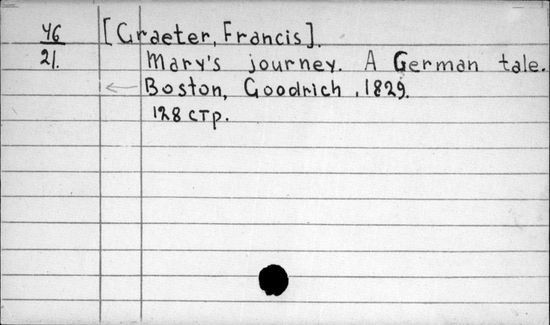 46 [Graeter, Francis].
21. Mary's journey. A German tale.
Boston, Goodrich, 1829.
128 стр.